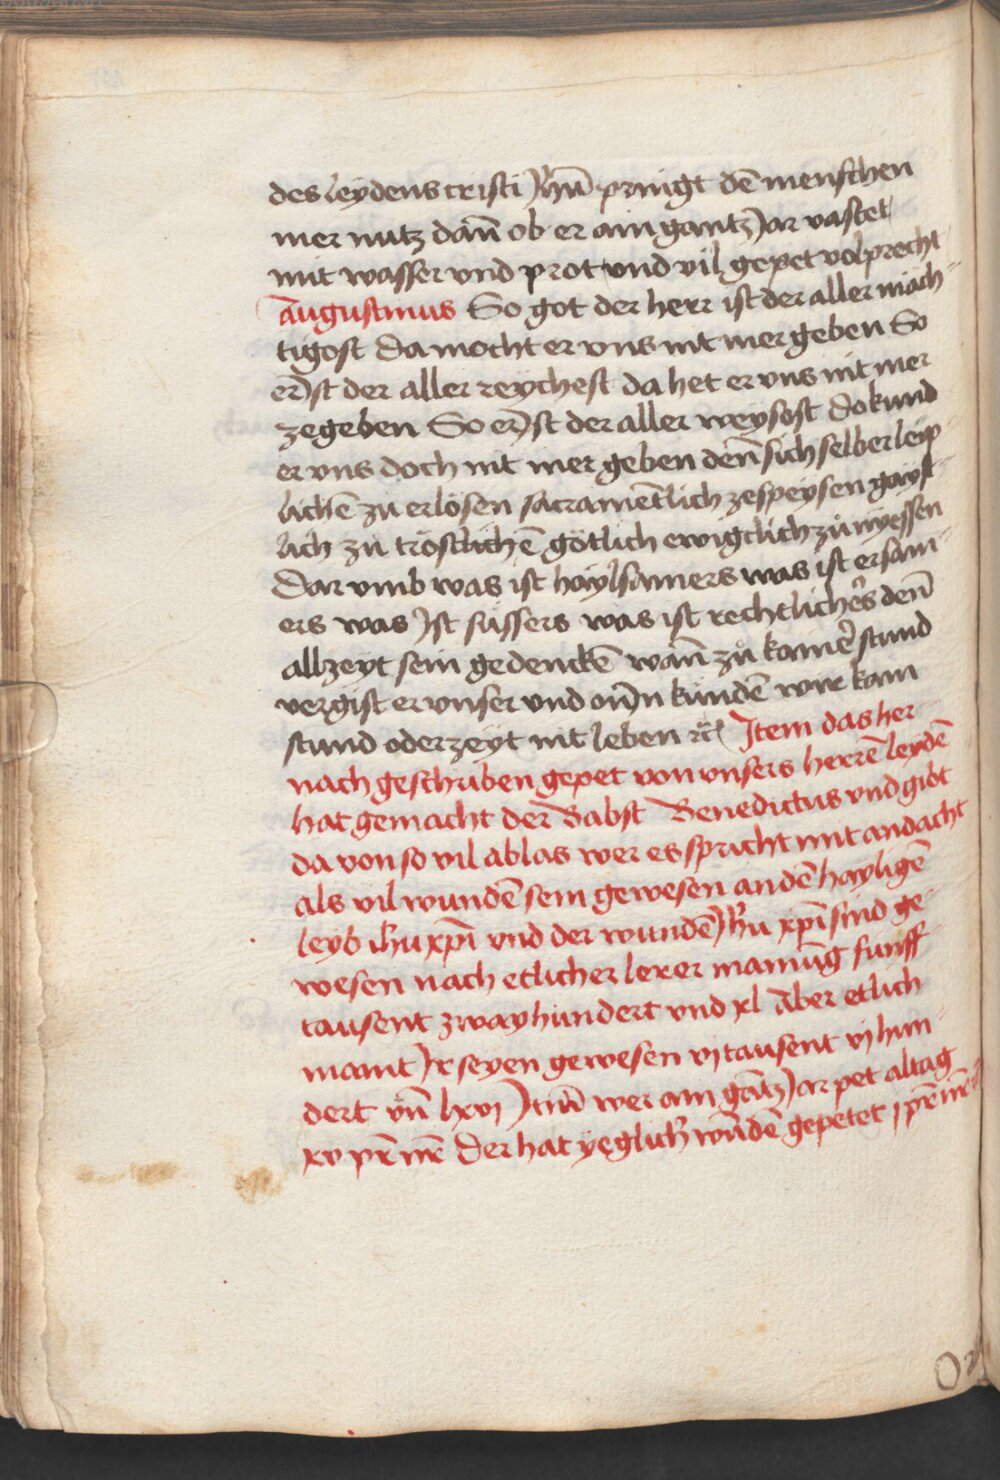 des leydens cristi Jhū pringt dē menschen
mer nutz dān ob er ain gantz Jar vastet
mit wasser vnd prot vnd vil gepet volprecht
Augustinus So got der herr ist der aller mäch-
tigost da mocht er vns nit mer geben So
er Jst der aller reychest da het er vns nit mer
zegeben So er Jst der aller weysost do kund
er vns doch nit mer geben deñ sich selber leip-
lichē zu erlösen sacramētlich zespeysen gayst-
lich zu tröstlichē götlich ewigclich zů nyessen
Dar vmb was ist haylsamers was ist ersam-
ers was Jst süssers was ist rechtlichers deñ
allzeyt sein gedenckē wañ zů kainer stund
vergist er vnser vnd on Jn kündē wir kain
stund oder zeyt nit leben rc̄ Jtem das her
nach geschriben gepet von vnsers herrē leydē
hat gemacht der Babst Benedictus vnd gibt
da von so vil ablas wer es spricht mit andacht
als vil wundē sein gewesen an dē hayligē
leyb ihu xpi vnd der wundē Jhu xpi sind ge-
wesen nach etlicher lerer mainūg funff
tausent zway hundert vnd xl Aber etlich
maint Jr seyen gewesen vj tausent vj hun-
dert vñ lxvj Jtm̄ wer ain gātz Jar pet altag
xv pr̄ nr̄ Der hat yeglichr wūdē gepetet j pr̄ nr̄